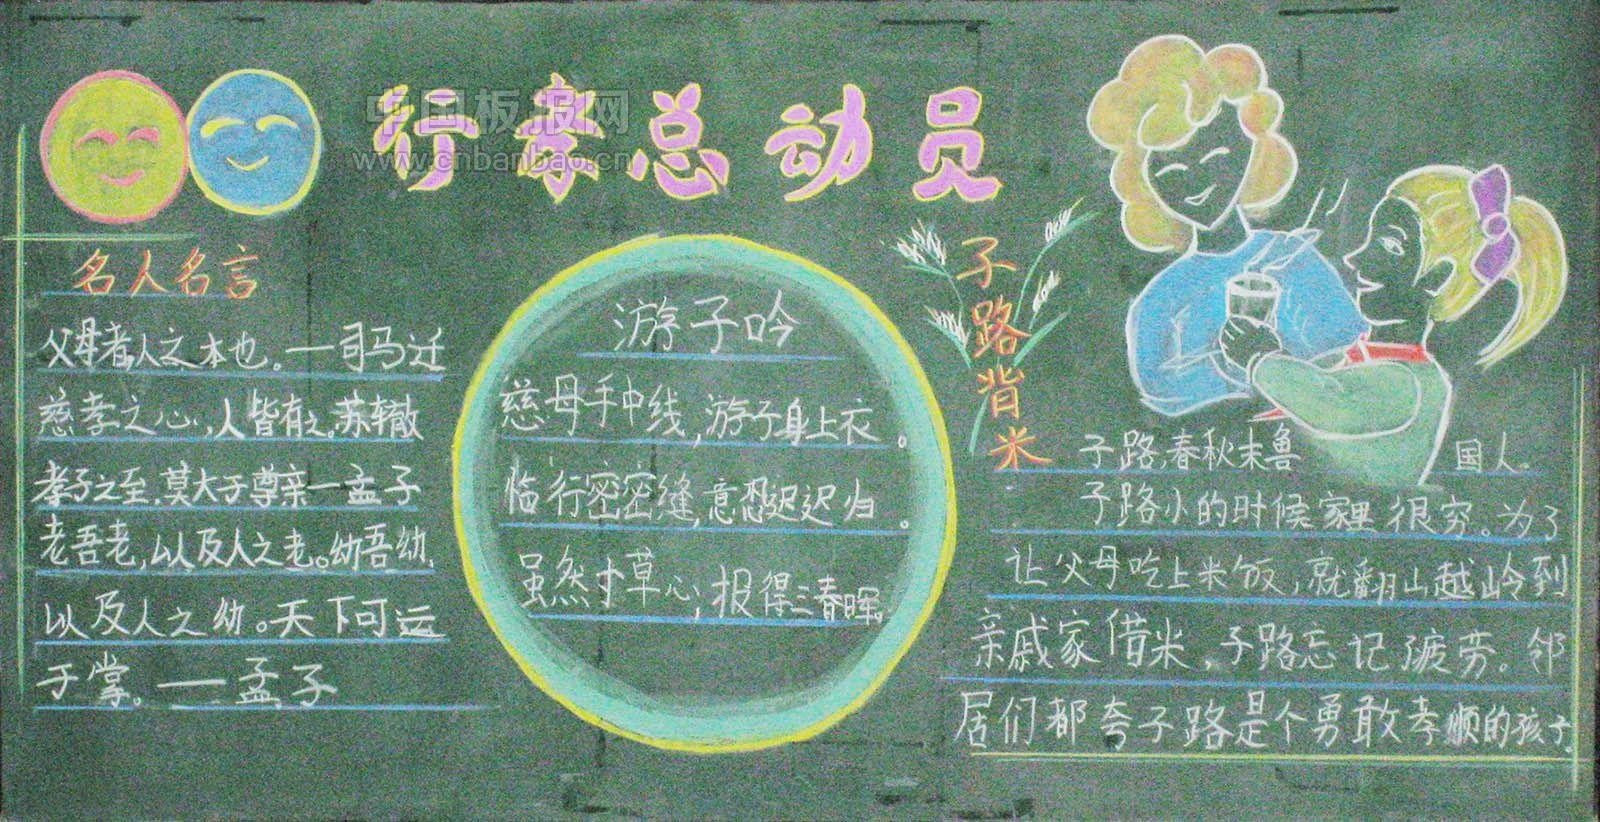 中国板报网
www.cnbanbao.cn
行孝总动员
名人名言
父母者,人之本也。——司马迁
慈孝之心,人皆有之。苏辙
孝子之至,莫大于尊亲—孟子
老吾老,以及人之老。幼吾幼,
以及人之幼。天下可运
于掌。——孟子
游子吟
慈母手中线,游子身上衣。
临行密密缝,意恐迟迟归。
虽然寸草心,报得三春晖。
子路背米
子路,春秋末鲁国人。
子路小的时候家里很穷。为了
让父母吃上米饭,就翻山越岭到
亲戚家借米,子路忘记疲劳。邻
居们都夸子路是个勇敢孝顺的孩子。